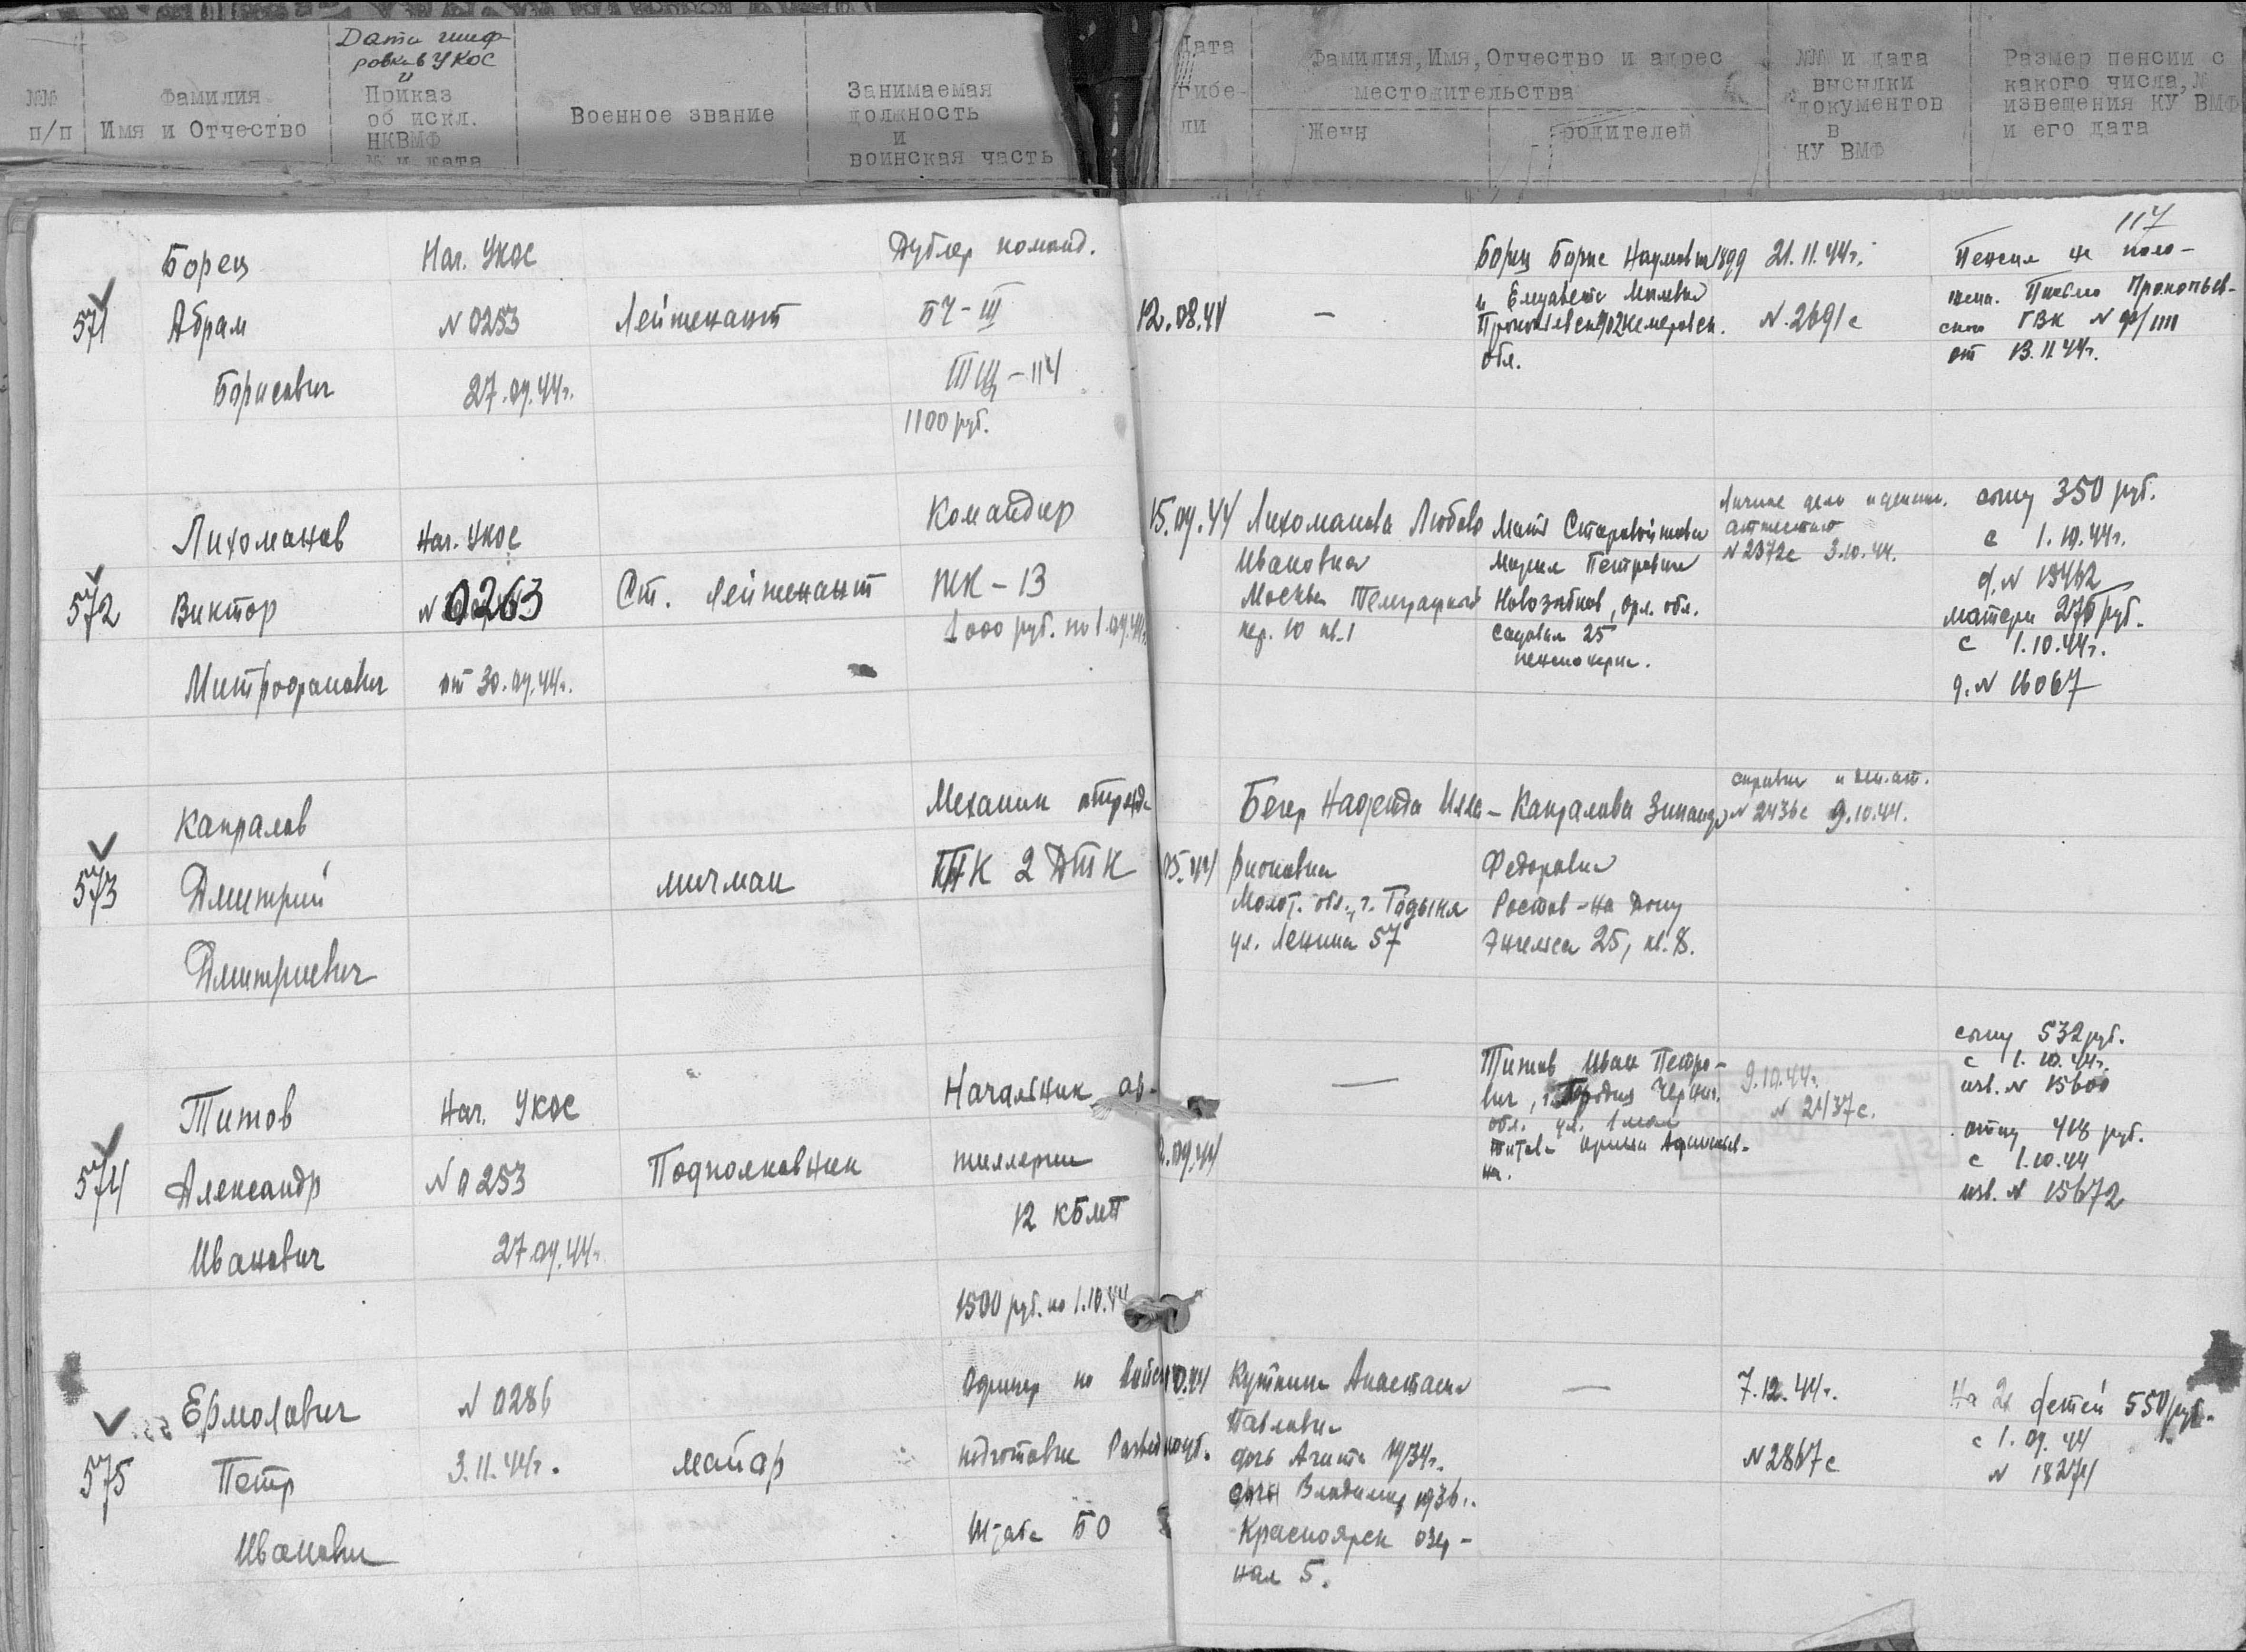 Дата шиф-
ровки в УКОС
и
№№
п/п
Фамилия
Имя и Отчество
Приказ
об искл.
НКВМФ
№ и дата
Военное звание
Занимаемая
должность
и
воинская часть
Дата
гибе-
ли
Фамилия, Имя, Отчество и адрес
местожительства
Жены
родителей
№№ и дата
высылки
документов
в
КУ ВМФ
Размер пенсии с
какого числа, №
извещения КУ ВМФ
и его дата
117
571
Борец
Абрам
Борисович
Нач. УКОС
N 0253
27.09.44г.
Лейтенант
Дублер команд.
БЧ-III
ТЩ-114
1100 руб.
12.08.44
—
Борец Борис Наумович 1899
и Елизавета
обл.
21.11.44г.
N 2691с
Пенсия не поло-
жена. Письмо Прокопьев-
ского ГВК N
от 13.11.44г.
572
Лихоманов
Виктор
Митрофанович
Нач. УКОС
N 0263
от 30.09.44г.
Ст. Лейтенант
Командир
ТК-13
1000 руб. по 1.09.44г.
15.09.44
Лихоманова Любовь
Ивановна
Москва Телеграфный
пер. 10 кв.1
Мать Старовойтова
Мария Петровна
Новозыбков, Орл. обл.
Садовая 25
пенсионерка.
Личное дело и денежн.
аттестат
N 2372с 3.10.44.
сыну 350 руб.
с 1.10.44г.
д.N 15462
матери 275 руб.
с 1.10.44г.
д.N 16067
573
Капралов
Дмитрий
Дмитриевич
мичман
Механик отряда
ТК 2 ДТК
05.44
Бегер Надежда Илла-
рионовна
Молот. обл., г.
ул. Ленина 57
Капралова Зинаида
Федоровна
Ростов-на Дону
Энгельса 25, кв.8.
справка и ден.ат.
N 2436с 9.10.44.
574
Титов
Александр
Иванович
Нач. УКОС
N 0253
27.09.44г.
Подполковник
Начальник ар-
тиллерии
12 КБМП
1500 руб. по 1.10.44
2.09.44
—
Титов Иван Петро-
вич, г. Городня Черниг.
обл. ул. 1 мая
Титова
на.
9.10.44г.
N 2437с.
сыну 532 руб.
с 1.10.44г.
изв. N 15600
отцу 418 руб.
с 1.10.44
изв. N 15672
575
Ермолович
Петр
Иванович
N 0286
3.11.44г.
майор
Офицер по
подготовке
Штаба БО
0.44
Анастасия
Павловна
дочь 1934г.
сын Владимир 1936г.
Красноярск
5.
—
7.12.44г.
N 2867с
На 2х детей 550 руб.
с 1.09.44
N 18274